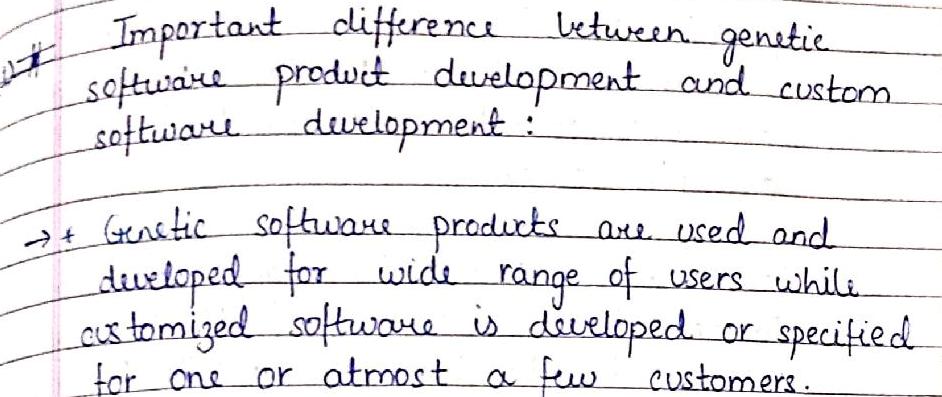 # Important difference between genetic
software product development and custom
software development :
→ + Genetic software products are used and
developed for wide range of users while
customized software is developed or specified
for one or atmost a few customers.